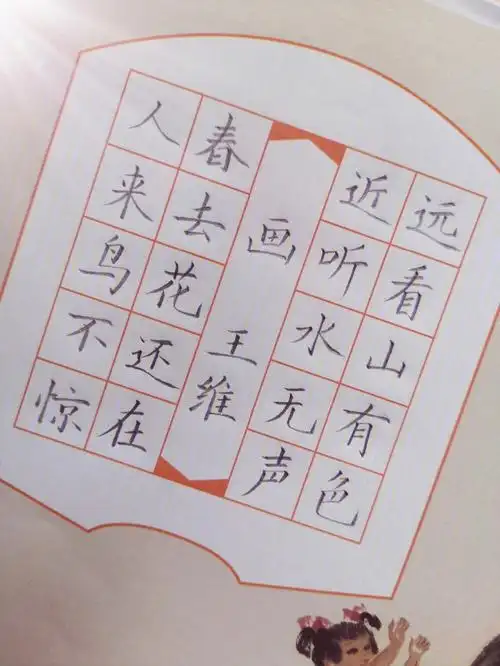 远看山有色
近听水无声
画
王维
春去花还在
人来鸟不惊